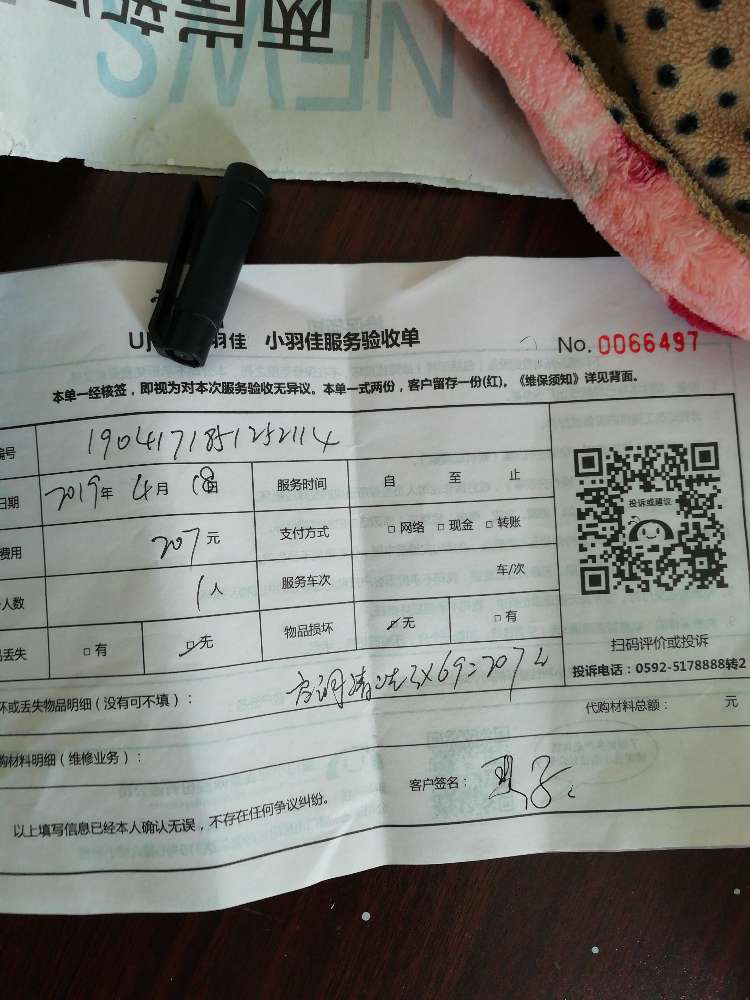 NEW2
羽佳 小羽佳服务验收单 No. 0066497
本单一经核签，即视为对本次服务验收无异议。本单一式两份，客户留存一份(红)。《维保须知》详见背面。
编号 1904171851252114
日期 2019年 4月 18日 服务时间 自 至 止
费用 207元 支付方式 □网络 □现金 □转账
人数 1人 服务车次 车/次
丢失 □有 □无 物品损坏 □无 □有
投诉或建议
扫码评价或投诉
投诉电话：0592-5178888转2
坏或丢失物品明细（没有可不填）： 空调清洗3X69=207元
代购材料总额： 元
购材料明细（维修业务）：
客户签名：
以上填写信息已经本人确认无误，不存在任何争议纠纷。